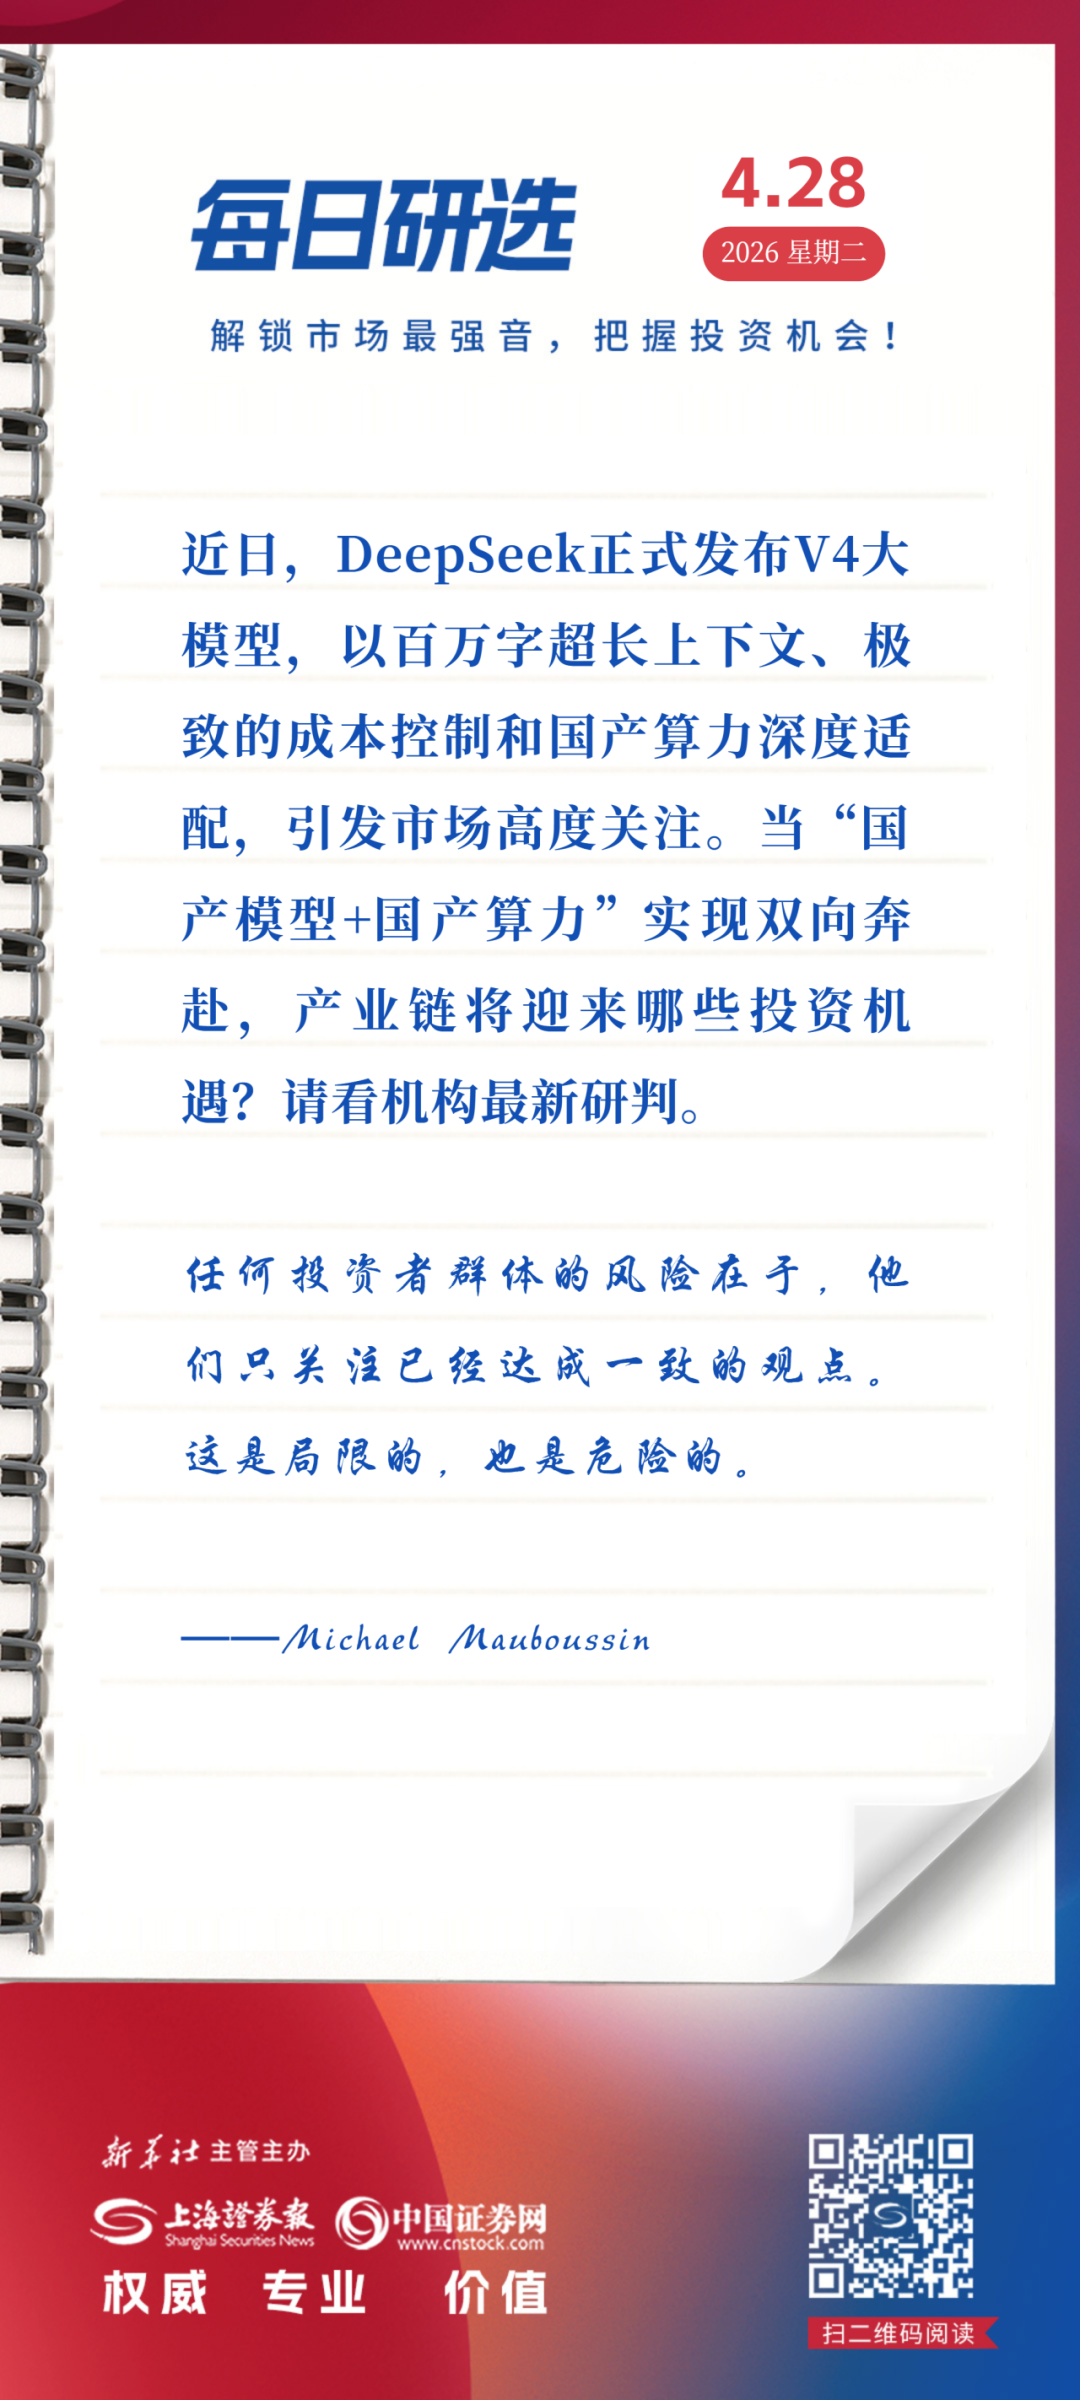 每日研选
4.28
2026 星期二
解锁市场最强音，把握投资机会！
近日，DeepSeek正式发布V4大
模型，以百万字超长上下文、极
致的成本控制和国产算力深度适
配，引发市场高度关注。当“国
产模型+国产算力”实现双向奔
赴，产业链将迎来哪些投资机
遇？请看机构最新研判。
任何投资者群体的风险在于，他
们只关注已经达成一致的观点。
这是局限的，也是危险的。
——Michael Mauboussin
新华社 主管主办
上海證券報
Shanghai Securities News
中国证券网
www.cnstock.com
权威 专业 价值
扫二维码阅读